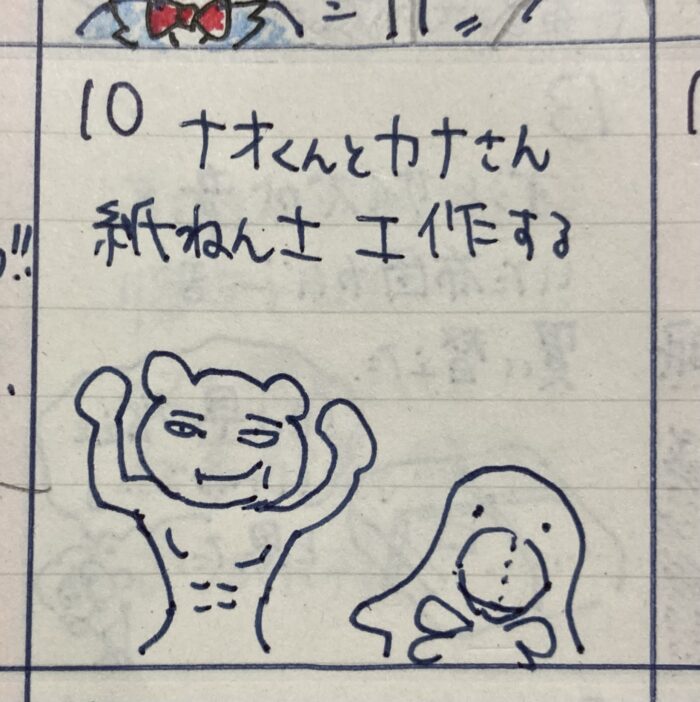 10
ナオくんとカナさん
紙ねん土 工作する
!!